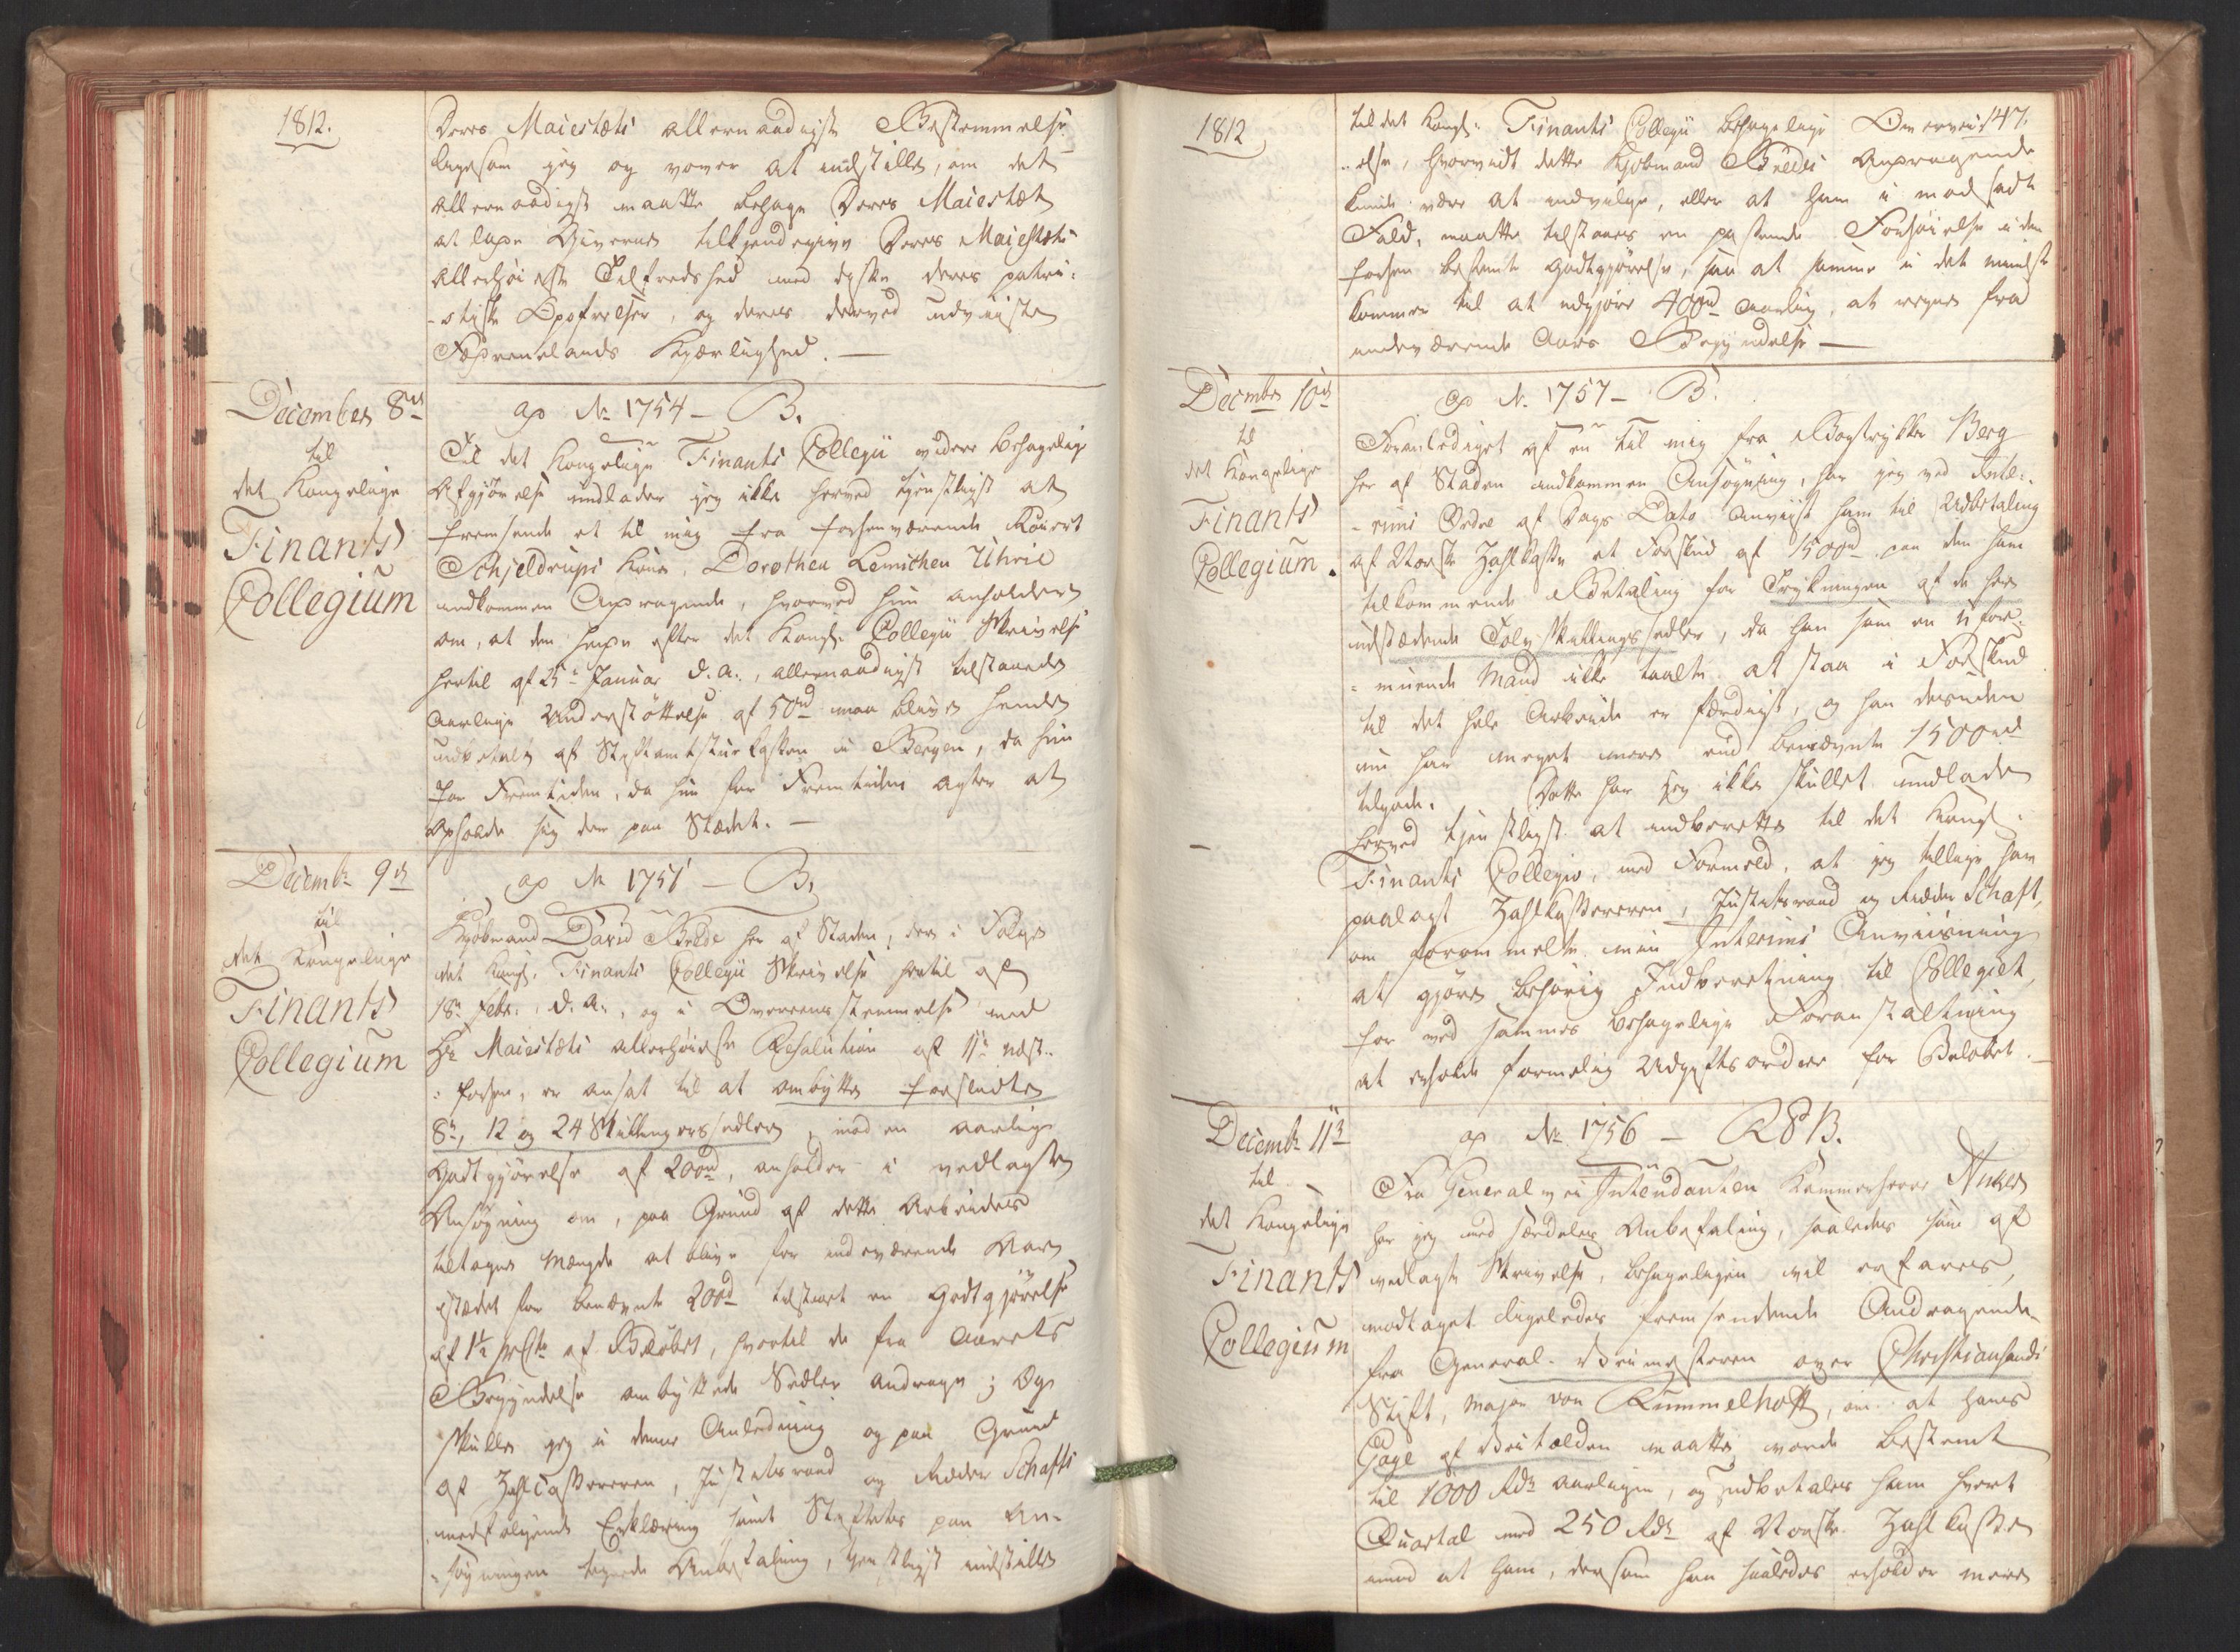 1812.
Deres Maiestæts allernaadigste Bestemmelse
ligesom jeg og vover at indstille, om det
allernaadigst maatte behage Deres Maiestæt
at lade Giverne tilkjendegive Deres Maiestæts
Allerhøieste Tilfredshed med disse deres patri-
-otiske Opofrelser, og deres derved udviiste
Fædrenelands Kjærlighed.
December 8de
til
det Kongelige
Finants
Collegium
ad No 1754 - B.
Til det Kongelige Finants Collegii videre behagelig
Afgjørelse undlader jeg ikke herved tjenstligst at
fremsende et til mig fra forhenværende
Schjeldrups Kone, Dorothea Lemichen Uhrie
indkommen Andragende, hvorved hun anholder
om, at den hende efter det Kongl. Collegii Skrivelse
hertil af 25de Januar d. A., allernaadigst tilstaaede
aarlige Understøttelse af 50rd maa blive hende
udbetalt af Stiftamtstuekassen i Bergen, da hun
for Fremtiden, da hun for Fremtiden agter at
opholde sig der paa Stædet.
Decembr 9de
til
det Kongelige
Finants
Collegium
ad No 1751 - B.
Kjøbmand David Bilde her af Staden, der i Følge
det Kongl. Finants Collegii Skrivelse hertil af
18de Febr. d. A., og i Overeensstemmelse med
Hs Maiestæts allerhøieste Resolution af 11te næst-
-forhen, er ansat til at ombytte forslidte
8te, 12 og 24 Skillingssedler, mod en aarlig
Godtgjørelse af 200rd, anholder i vedlagte
Ansøgning om, paa Grund af dette Arbeides
tiltagne Mængde at blive for indeværende Aar
istædet for benævnte 200rd tilstaaet en Godtgjørelse
af 1½ prCto af Beløbet, hvortil de fra Aarets
Begyndelse ombyttede Sedler andrage; Og
skulle jeg i denne Anledning og paa Grund
af Zahlcassereren, Justitsraad og Ridder Schafts
medfølgende Erklæring samt Stiftets paa An-
-søgningen tegnede Anbefaling, tjenstligst indstille
1812
147.
til det Kongl. Finants Collegii behagelige Overvei-
-else, hvorvidt dette Kjøbmand Bildes Andragende
kunde være at indvilge, eller at ham i modsadt
Fald, maatte tilstaaes en passende Forhøielse i den
forhen bestemte Godtgjørelse, saa at samme i det mindste
kommer til at udgjøre 400rd aarlig, at regne fra
indeværende Aars Begyndelse
Decmber 10de
til
det Kongelige
Finants
Collegium.
ad No 1757 - B.
Foranlediget af en til mig fra Bogtrykker Berg
her af Staden indkommen Ansøgning, har jeg ved Inte-
-rims Ordre af Dags Dato anviist ham til Udbetaling
af Norske Zahlkasse et Forskud af 1500rd paa den ham
tilkommende Betaling for Trykningen af de her
udstædende Tolv Skillingssedler, da han som en ufor-
-muende Mand ikke taalte at staa i Forskud
til det hele Arbeide er færdigt, og han desuden
nu har meget mere end benævnte 1500rd
tilgode. Dette har jeg ikke skullet undlade
herved tjenstligst at indberette til det Kongl.
Finants Collegio, med Formeld, at jeg tillige har
paalagt Zahlkassereren, Justitsraad og Ridder Schaft,
om formeldte min Interims Anviisning
at gjøre behørig Indberetning til Collegiet,
for ved sammes behagelige Foranstaltning
at erholde formelig Udgiftsordre for Beløbet.
Decembr 11te
til
det Kongelige
Finants
Collegium
ad No 1756 - R&B.
Fra General Intendanten Kammerherre Anker
har jeg med særdeles Anbefaling, saaledes som af
vedlagte Skrivelse, behageligen vil erfares,
modtaget ligeledes fremsendende Andragende
fra General-Veimesteren over Christiansands
Stift, Major von Kummelhoff, om at hans
Gage af maatte vorde bestemt
til 1000 Rdr aarligen, og udbetales ham hvert
Quartal med 250 Rdr af Norske Zahlkasse
imod at ham, dersom han saaledes erholder mere